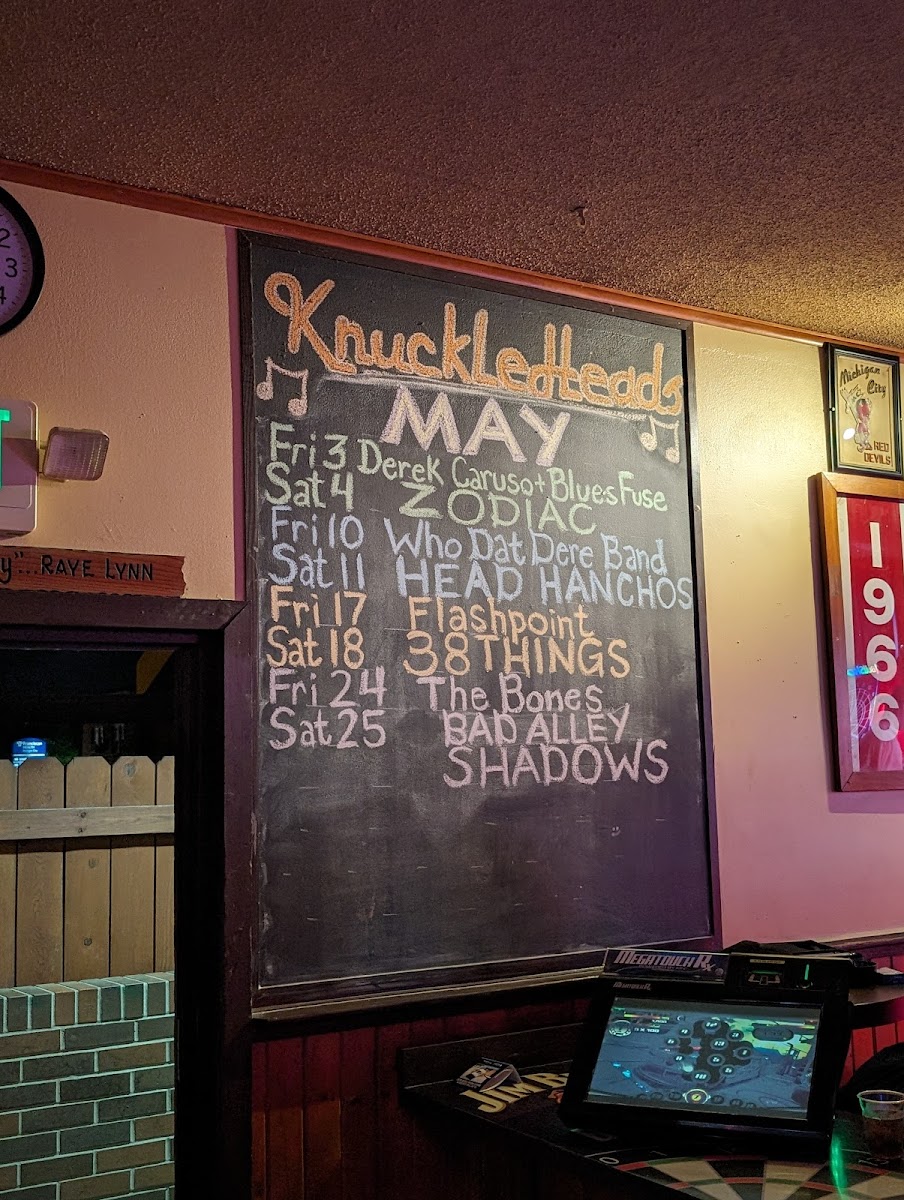 KnuckLedHeads
MAY
Fri 3 Derek Caruso + Blues Fuse
Sat 4 ZODIAC
Fri 10 Who Dat Dere Band
Sat 11 HEAD HANCHOS
Fri 17 Flashpoint
Sat 18 38 THINGS
Fri 24 The Bones
Sat 25 BAD ALLEY
SHADOWS
2
3
4
y"...RAYE LYNN
Michigan
City
RED
DEVILS
1966
MEGATOUCH Rx
JIM B